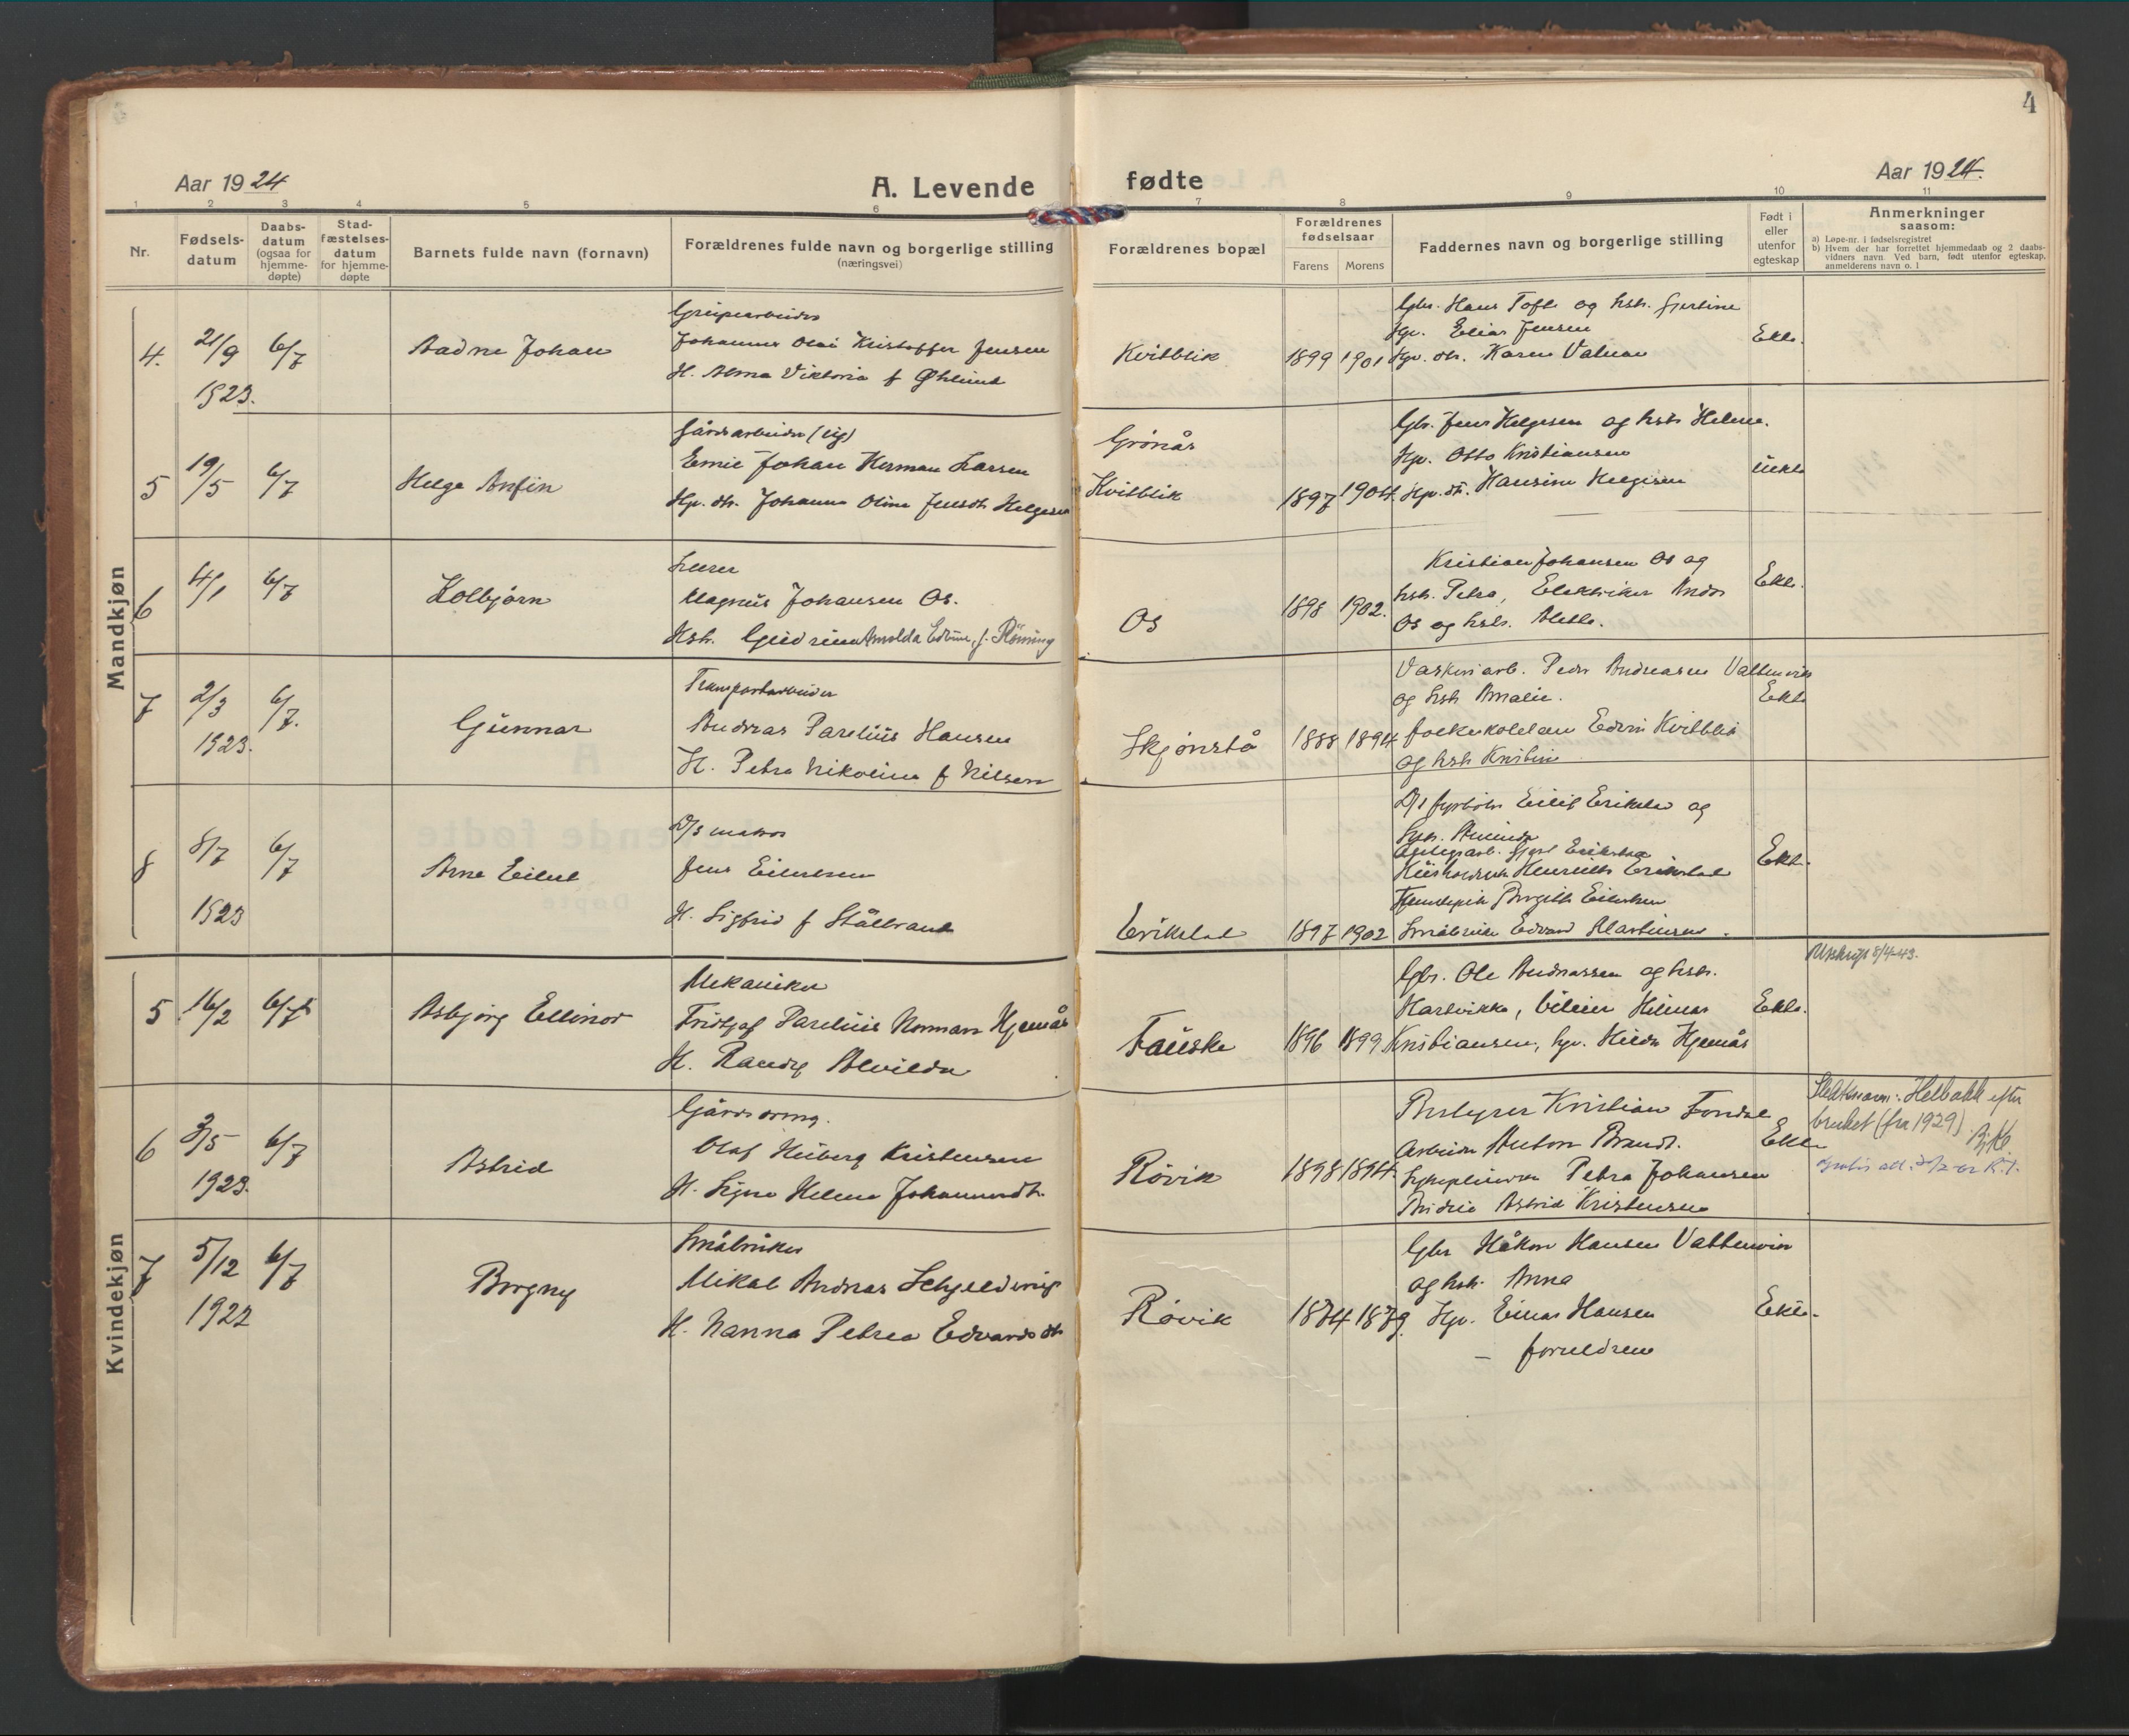 4
Aar 1924
A. Levende
fødte
Aar 1924.
1 2 3 4 5 6 7 8 9 10 11
Nr.
Fødsels-
datum
Daabs-
datum
(ogsaa for
hjemme-
døpte)
Stad-
fæstelses-
datum
for hjemme-
døpte
Barnets fulde navn (fornavn)
Forældrenes fulde navn og borgerlige stilling
(næringsvei)
Forældrenes bopæl
Forældrenes
fødselsaar
Farens Morens
Faddernes navn og borgerlige stilling
Født i
eller
utenfor
egteskap
Anmerkninger
saasom:
a) Løpe-nr. i fødselsregistret
b) Hvem der har forrettet hjemmedaab og 2 daabs-
vidners navn. Ved barn, født utenfor egteskap,
anmelderens navn o. l
Mandkjøn
4. 21/9 1923. 6/7
Aadne Johan
Johannes Olai Kristoffer Jensen
H. Alma Viktoria f Øhlund
Kvitblik
1899 1901
Gbr. Hans Toft og hstr. Gjertine
Hp. Elias Jensen
Hp. dtr. Karen Valnes
Ekte.
5 19/5 6/7
Helge Anfin
Gårdsarbeider (ug)
Emil Johan Herman Larsen
Hp. dtr. Johanna Oline Jensdtr Helgesen
Grønås
Kvitblik
1897 1904.
Gbr. Jens Helgesen og hstr Helene.
Hp. Otto Kristiansen
Hp. dt. Hansine Helgesen
Uekte
6 4/1 6/7
Kolbjørn
Lærer
Magnus Johansen Os.
Hstr. Gudrun Arnolda Edvine, f. Fløining
Os
1898 1902.
Kristian Johansen Os og
hstr. Petra, Elektriker
Os og hstr.
Ekte.
7 2/3 1923. 6/7.
Gunnar
Transportarbeider
Andreas Parelius Hansen
H. Petra Nikoline f Nilsen
Skjønstå
1888 1894
Vaskeriarb. Peder Andreasen Vattenvik
og hstr Amalie.
Edvin Kvitblik
og hstr Kristine
Ekte
8 8/7 1923 6/7
Arne Eilert
D/s matros
Jens Eilertsen
H. Sigfrid f Stålbrand
Erikstad
1897 1902
D/s fyrbøter Eilif Erikstad og
Henriette Erikstad
Borgith Eilertsen
Småbruker Edvard Martinsen.
Ekt.
Kvindekjøn
5 16/2 6/7
Asbjørg Ellinor
Mekaniker
Fridtjof Parelius Normann Hjemås
H. Randy Alvilda
Fauske
1896 1899
Gbr. Ole Andreassen og hstr.
Hartvikka, Hilmar
Kristiansen, hp. Hilda Hjemås
Ekte.
Utskrift 8/4-43.
6 3/5 1923. 6/7
Astrid
Olaf Heiberg Kristensen
H. Signe Helene Johannesdtr.
Røvik
1898 1894.
Bestyrer Kristian Fondal
Arbeider Anton Brandt.
Petra Johansen
Astrid Kristensen
Ekte
Slektsnavn: Helbakk efter
bruket (fra 1929).
7 5/12 1922 6/7
Borgny
Småbruker
Mikal Andreas Schjelderup
H. Nanna Petrea Edvardsdtr
Røvik
1874 1879.
Gbr Håkon Hansen Vattenvik
og hstr. Anna
Hp. Einar Hansen
– foreldrene
Ekte.